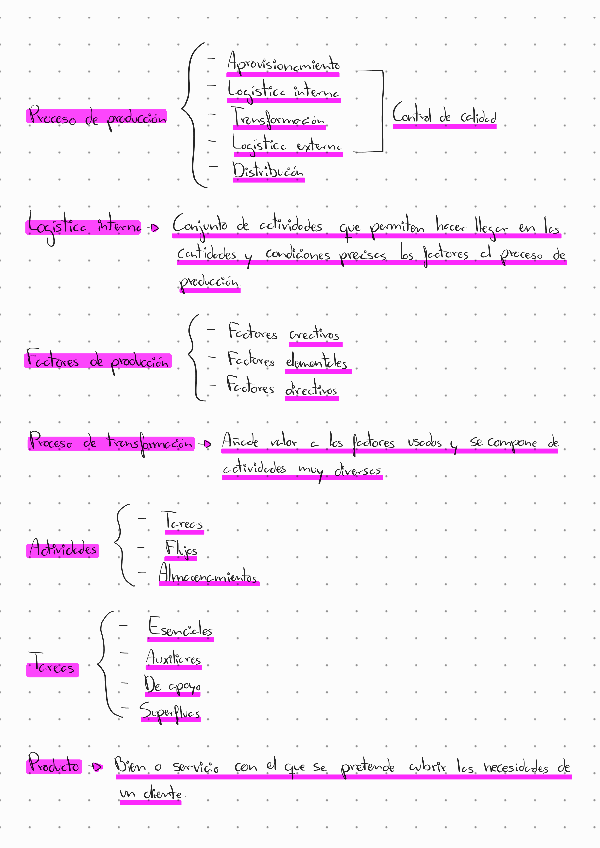 Proceso de producción
- Aprovisionamiento
- Logística interna
- Transformación
- Logística externa
- Distribución
Control de calidad
Logística interna → Conjunto de actividades que permiten hacer llegar en las
cantidades y condiciones precisas los factores al proceso de
producción
Factores de producción
- Factores creativos
- Factores elementales
- Factores directivos
Proceso de transformación → Añade valor a los factores usados y se compone de
actividades muy diversas
Actividades
- Tareas
- Flujos
- Almacenamientos
Tareas
- Esenciales
- Auxiliares
- De apoyo
- Superfluas
Producto → Bien o servicio con el que se pretende cubrir las necesidades de
un cliente.